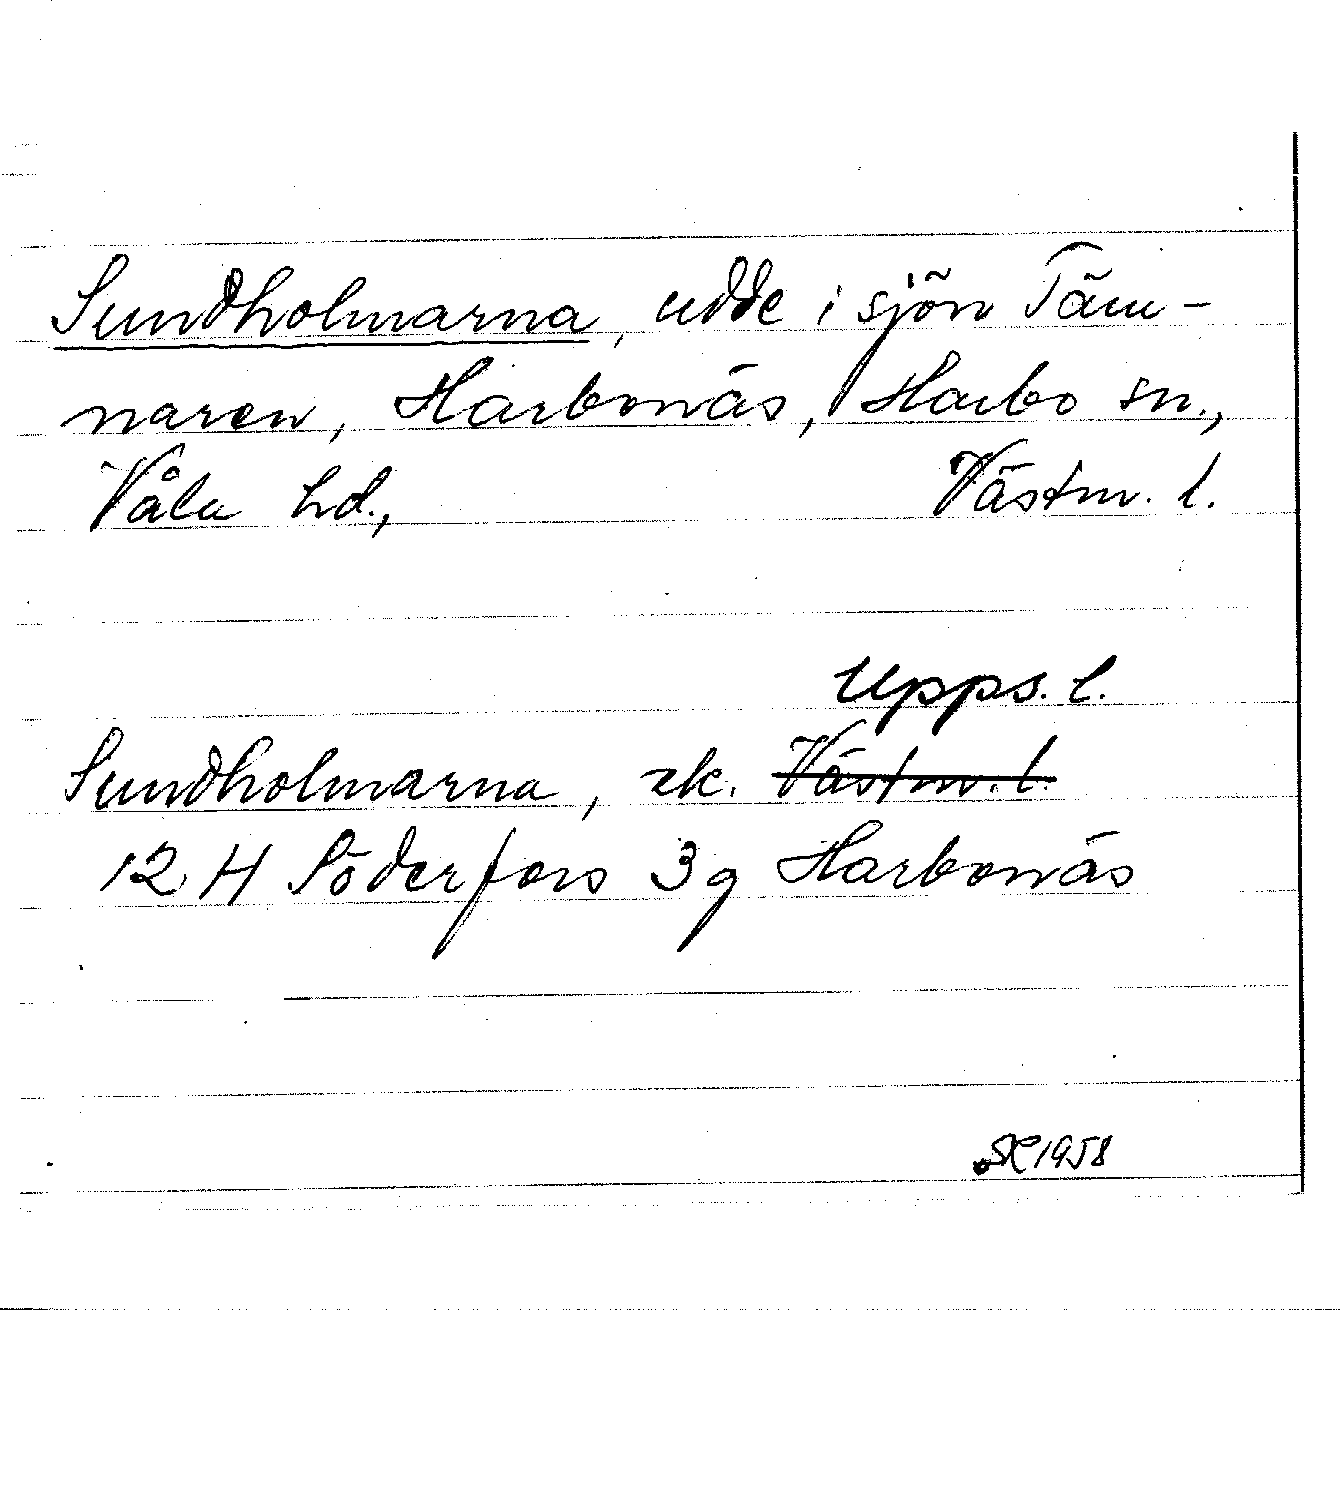 Sundholmarna, udde i sjön Täm-
naren, Harbonäs, Harbo sn.,
Våla hd., Västm. l.
Upps. l.
Sundholmarna, ek. Västm. l.
12 H Söderfors 3g Harbonäs
1958